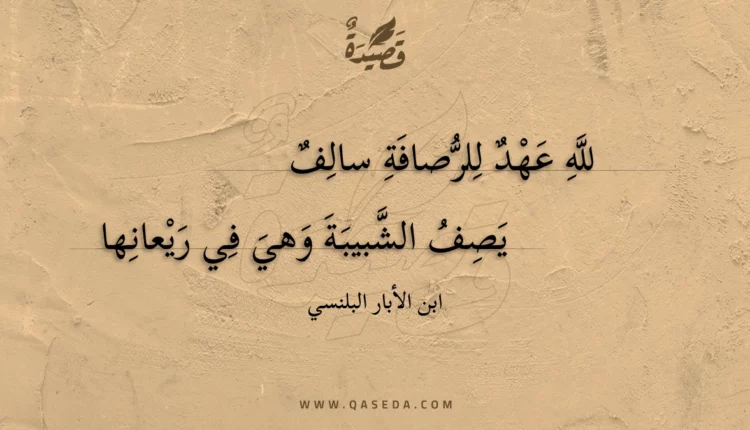 قَصِيْدَةٌ
للَّهِ عَهْدٌ لِلرُّصافَةِ سالِفٌ
يَصِفُ الشَّبيبَةَ وَهيَ فِي رَيْعانِها
ابن الأبار البلنسي
WWW.QASEDA.COM